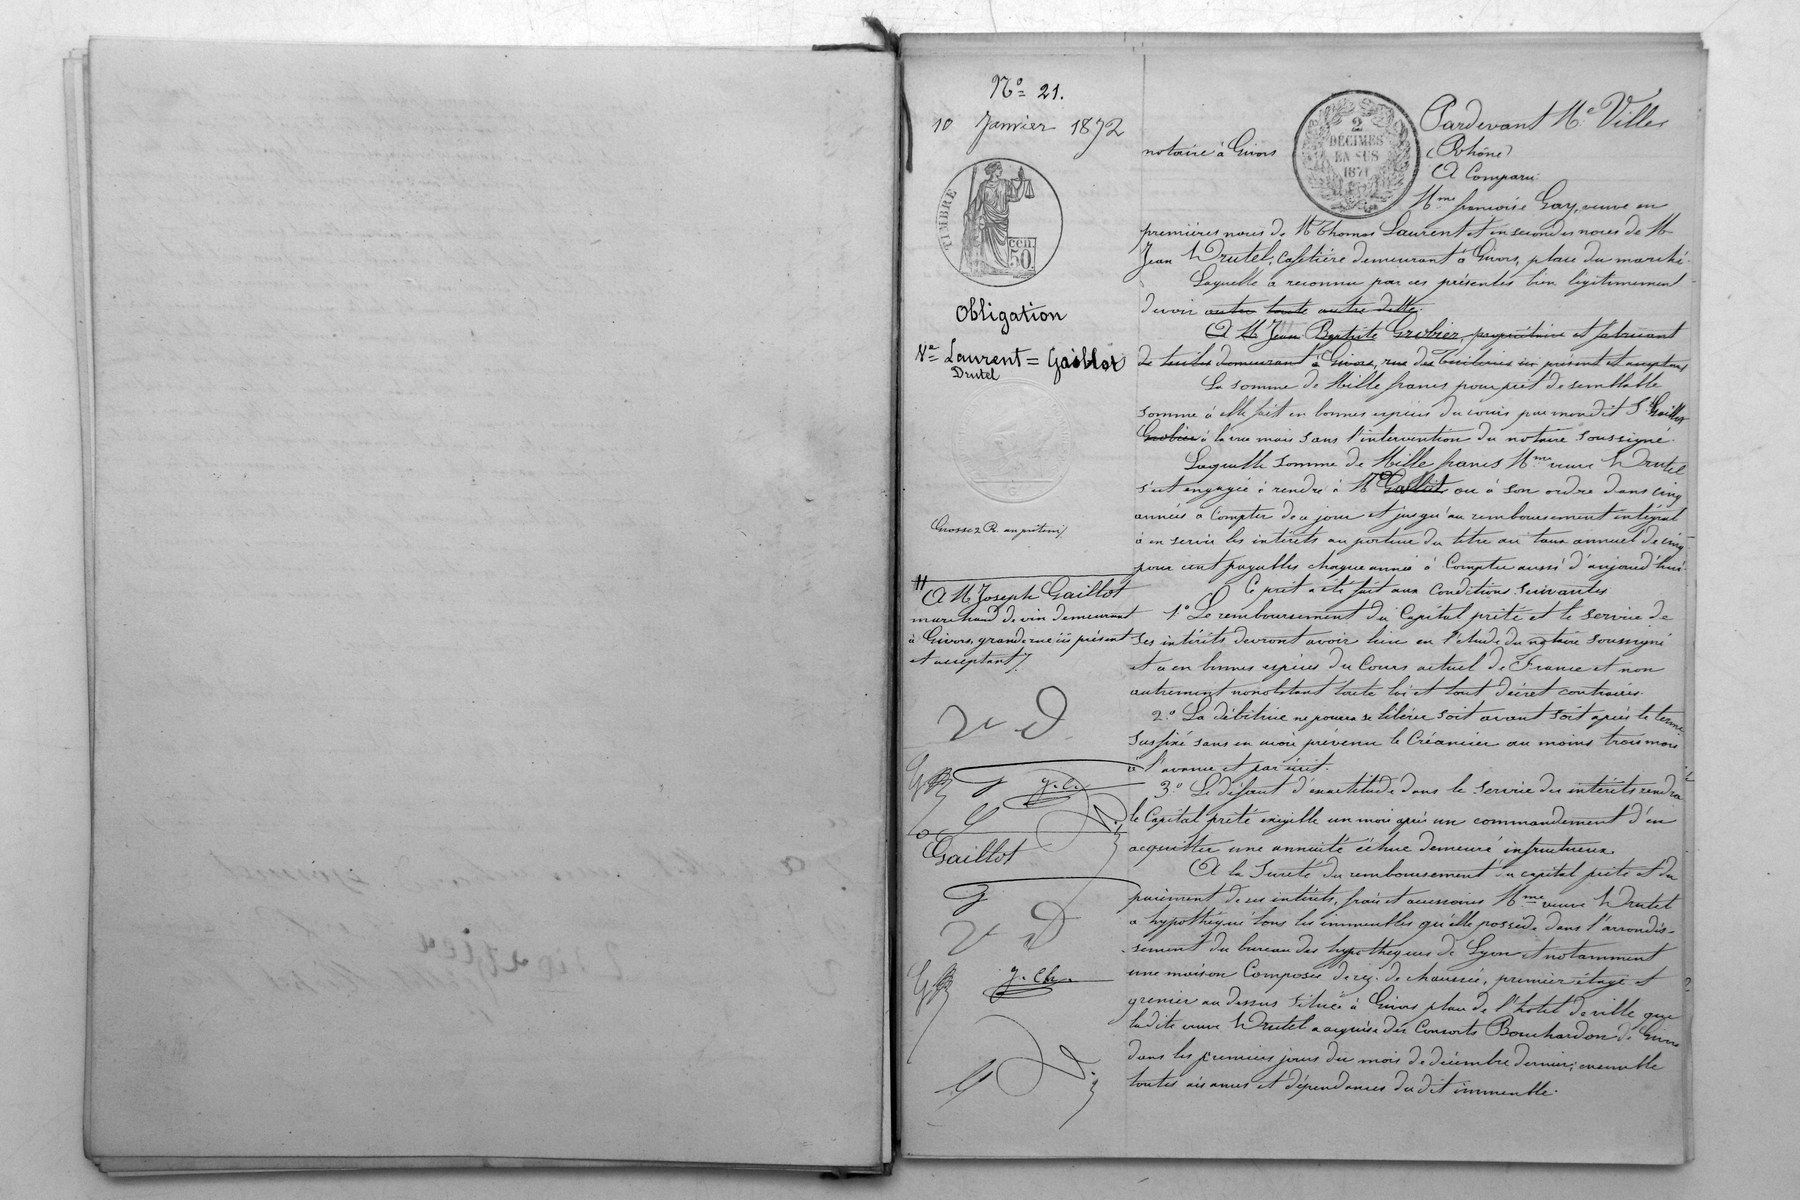 Nº 21.
10 Janvier 1872
TIMBRE
50 cen
Obligation
Ve Laurent = Gaillot
Drutel
Grosse 2 R. au prêteur/.
A Mr Joseph Gaillot
marchand de vin demeurant
à Givors, grande rue ici présent
et acceptant/.
v D
J. C.
Gaillot
v D
J. Ch.
2
DÉCIMES
EN SUS
1871
Pardevant Me Viller
notaire à Givors
(Rhône)
A Comparu:
Mme françoise Gay, veuve en
premières noces de Mr Thomas Laurent et en secondes noces de Mr
Jean Drutel, Cafetière demeurant à Givors, place du marché.
Laquelle a reconnu par ces présentes bien légitimement
devoir outre toute autre dette.
A Mr Jean Baptiste Grobier, propriétaire et fabricant
de tuiles demeurant à Givors, rue des Tuileries ici présent et acceptant
La somme de Mille francs pour prêt de semblable
somme à elle fait en bonnes espèces du cours par mondit Sr Gaillot
Grobier à la vue mais sans l'intervention du notaire soussigné.
Laquelle somme de Mille francs Mme veuve Drutel
s'est engagée à rendre à Mr Gaillot ou à son ordre dans cinq
années à Compter de ce jour et jusqu'au remboursement intégral
à en servir les intérêts au porteur du titre au taux annuel de cinq
pour cent payables chaque année à Compter aussi d'aujourd'hui.
Ce prêt a été fait aux Conditions suivantes
1º Le remboursement du Capital prêté et le service de
ses intérêts devront avoir lieu en l'étude du notaire soussigné
et a en bonnes espèces du Cours actuel de France et non
autrement nonobstant toute loi et tout décret contraires.
2º La débitrice ne pourra se libérer soit avant soit après le terme
susfixé sans en avoir prévenu le Créancier au moins trois mois
à l'avance et par écrit.
3º Le défaut d'exactitude dans le service des intérêts rendra
le Capital prêté exigible un mois après un commandement d'en
acquitter une annuité échue demeuré infructueux.
A la Sureté du remboursement du capital prêté et du
paiement de ses intérêts, frais et accessoires Mme veuve Drutel
a hypothéqué tous les immeubles qu'elle possède dans l'arrondis-
sement du bureau des hypothèques de Lyon et notamment
une maison Composée de rez. de chaussée, premier étage et
grenier au dessus située à Givors place de l'hotel de ville que
ladite veuve Drutel a acquise des Consorts Bouchardon de Givors
dans les premiers jours du mois de décembre dernier, ensemble
toutes aisances et dépendances du dit immeuble.